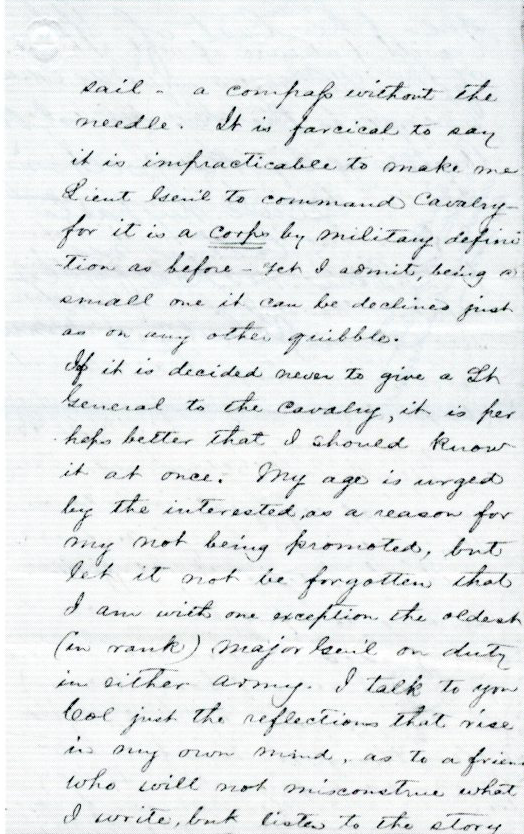 sail - a compass without the
needle. It is farcical to say
it is impracticable to make me
Lieut Gen'l to command Cavalry -
for it is a corps by military defini
-tion as before - yet I admit, being a
small one it can be declined just
as on any other quibble.
If it is decided never to give a Lt
General to the cavalry, it is per
haps better that I should know
it at once. My age is urged
by the interested, as a reason for
my not being promoted, but
let it not be forgotten that
I am with one exception the oldest
(in rank) Major Gen'l on duty
in either army. I talk to you
Col just the reflections that rise
in my own mind, as to a frien
who will not misconstrue what
I write, but listen to the story